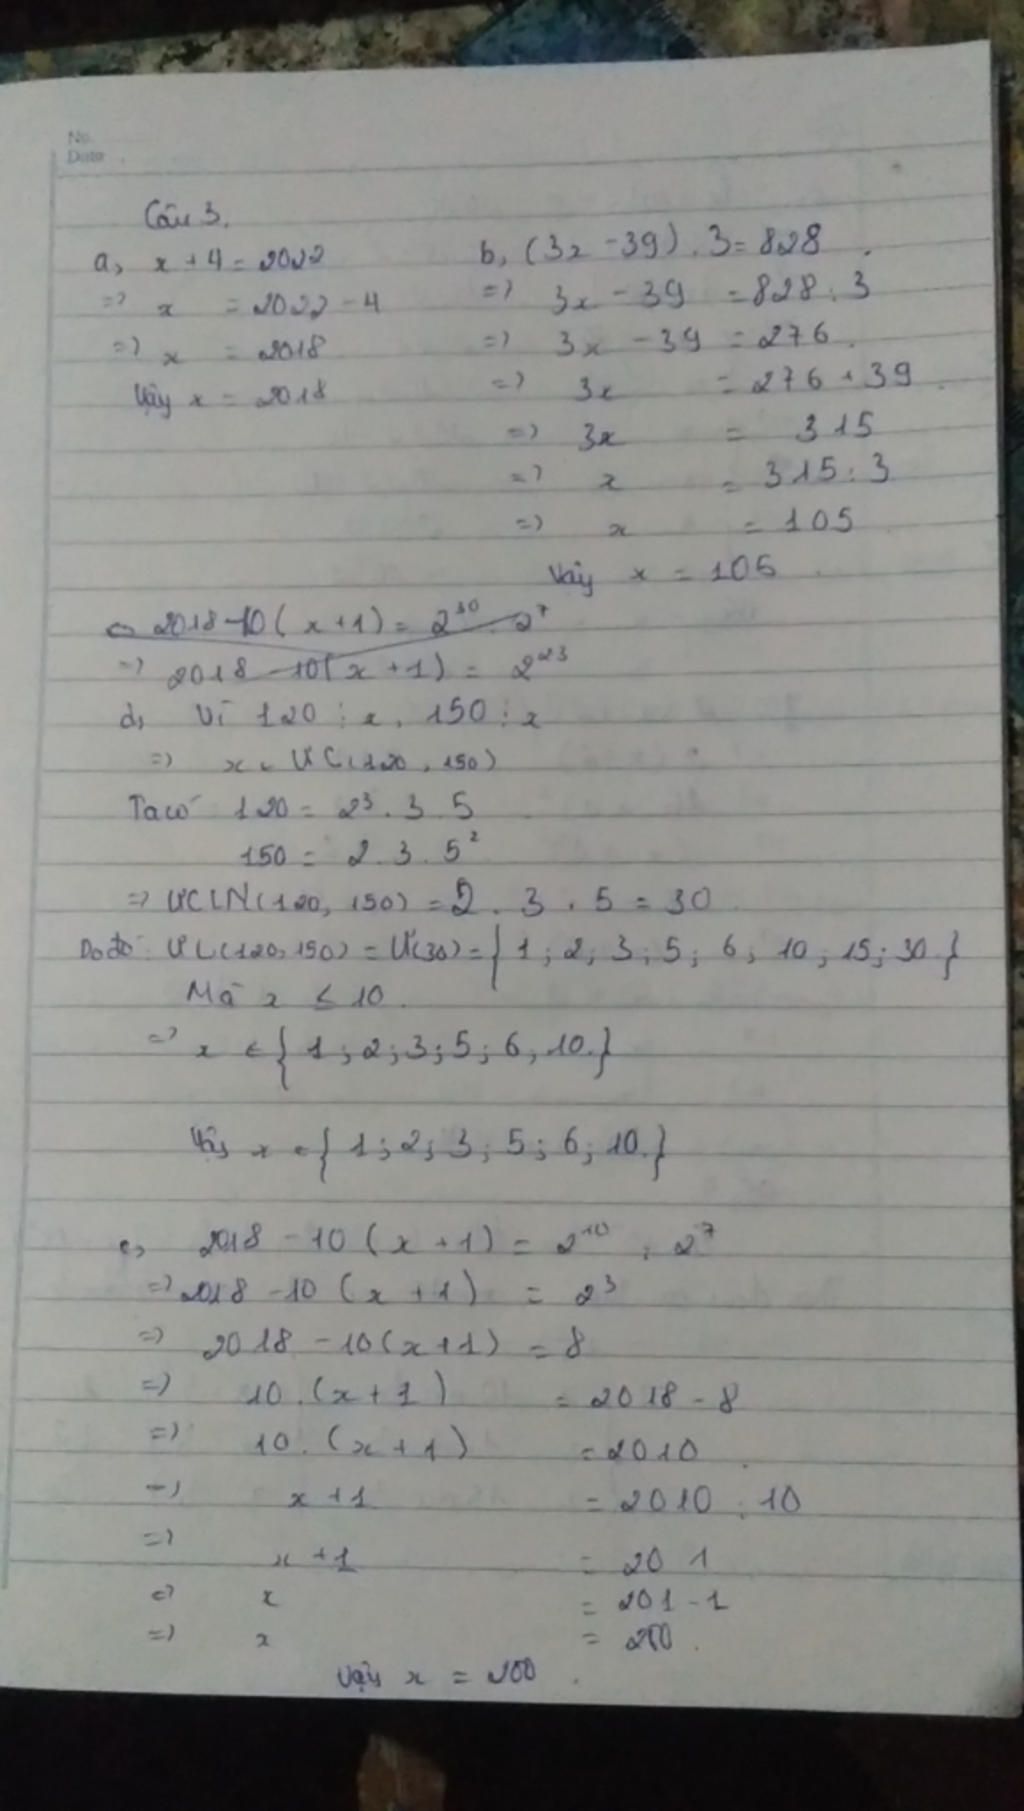 No.
Date
Câu 3.
a, x + 4 = 2022
=> x = 2022 - 4
=> x = 2018
Vậy x = 2018
b, (3x - 39) . 3 = 828
=> 3x - 39 = 828 : 3
=> 3x - 39 = 276
=> 3x = 276 + 39
=> 3x = 315
=> x = 315 : 3
=> x = 105
Vậy x = 105
c, 2018 - 10 (x + 1) = 2^30 : 2^7
=> 2018 - 10(x + 1) = 2^23
d, Vì 120 ⋮ x, 150 ⋮ x
=> x ∈ ƯC(120, 150)
Ta có 120 = 2^3 . 3 . 5
150 = 2 . 3 . 5^2
=> ƯCLN(120, 150) = 2 . 3 . 5 = 30
Do đó: ƯC(120, 150) = Ư(30) = { 1 ; 2 ; 3 ; 5 ; 6 ; 10 ; 15 ; 30. }
Mà x ≤ 10.
=> x ∈ { 1 ; 2 ; 3 ; 5 ; 6 ; 10. }
Vậy x ∈ { 1 ; 2 ; 3 ; 5 ; 6 ; 10. }
c, 2018 - 10 (x + 1) = 2^10 : 2^7
=> 2018 - 10 (x + 1) = 2^3
=> 2018 - 10(x + 1) = 8
=> 10 . (x + 1) = 2018 - 8
=> 10 . (x + 1) = 2010
=> x + 1 = 2010 : 10
=> x + 1 = 201
=> x = 201 - 1
=> x = 200.
Vậy x = 200.